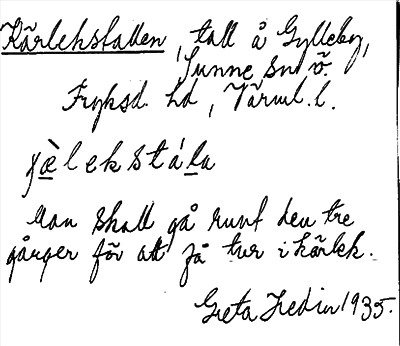 Kärlekstallen, tall å Gylleby,
Sunne sn ö.
Fryksd. hd, Värml. l.
çæ̀lekstála
Man skall gå runt den tre
gånger för att få tur i kärlek.
Greta Hedin 1935.